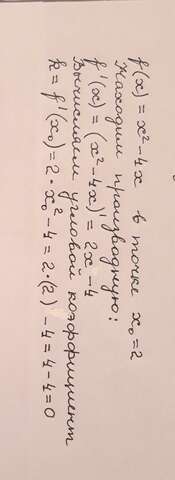 f(x) = x² - 4x в точке x₀ = 2
Находим производную:
f'(x) = (x² - 4x)' = 2x - 4
Вычисляем угловой коэффициент
k = f'(x₀) = 2·x₀² - 4 = 2·(2) - 4 = 4 - 4 = 0